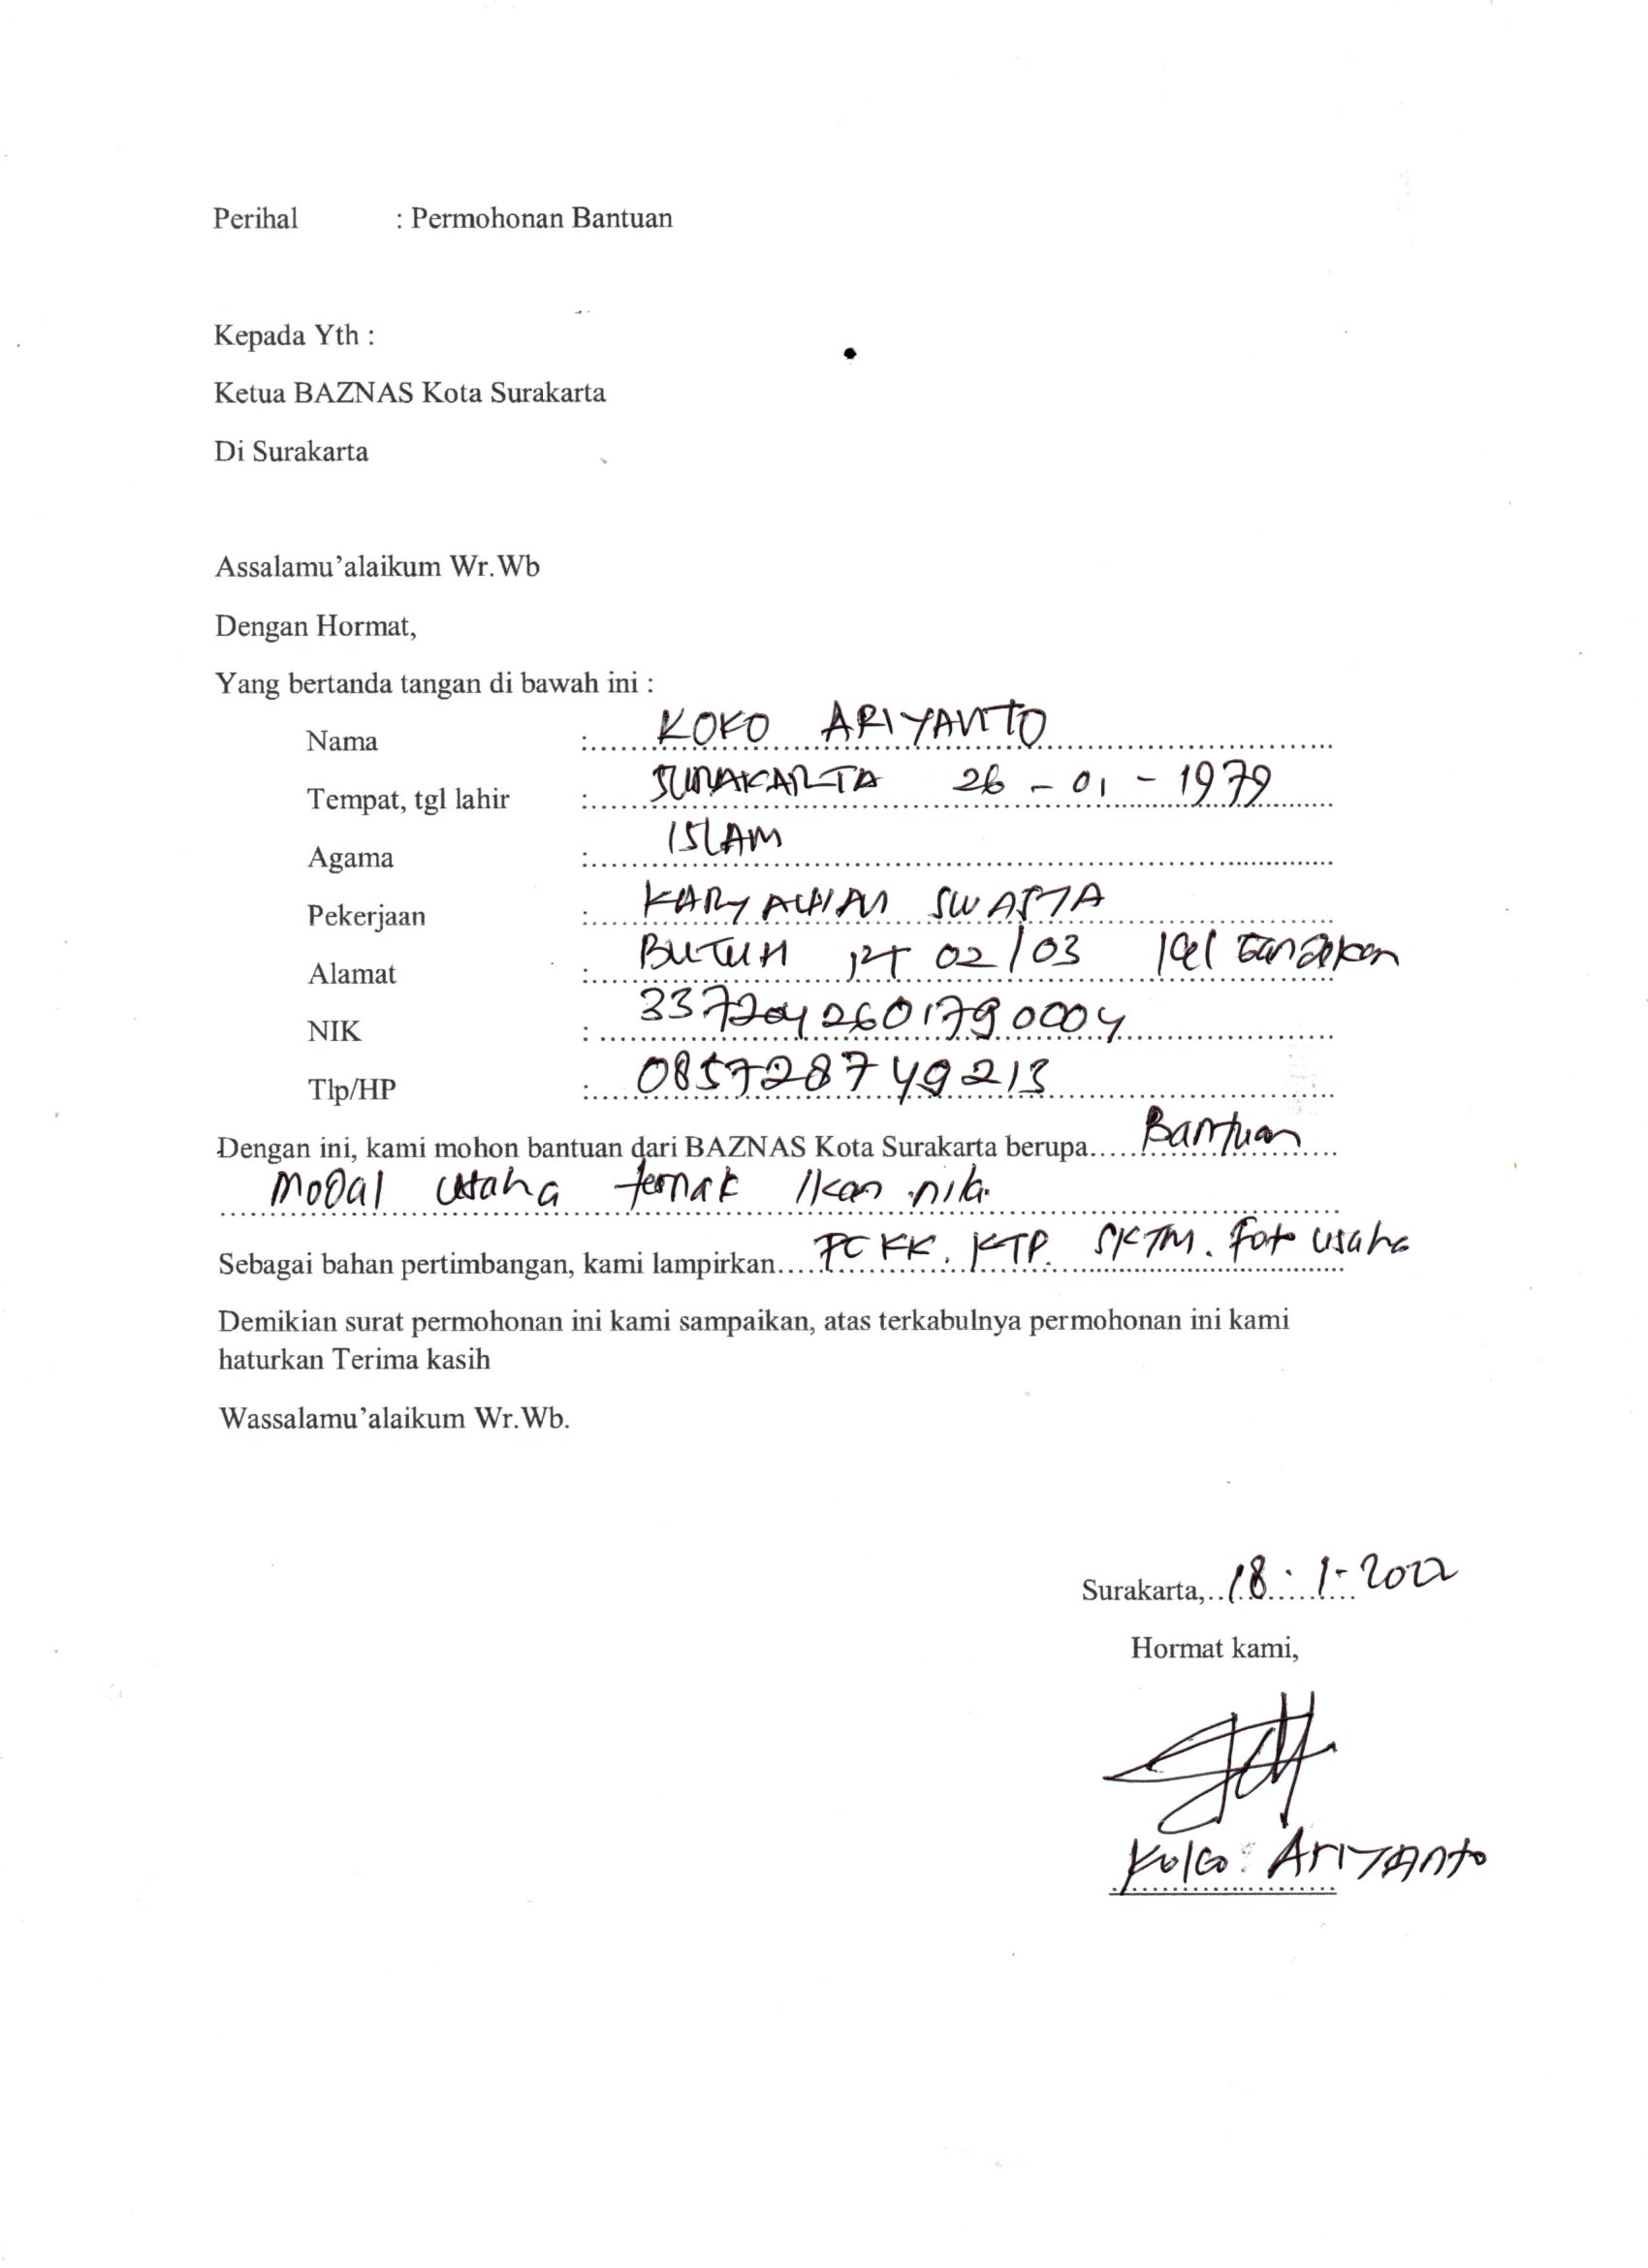 Perihal : Permohonan Bantuan
Kepada Yth :
Ketua BAZNAS Kota Surakarta
Di Surakarta
Assalamu'alaikum Wr.Wb
Dengan Hormat,
Yang bertanda tangan di bawah ini :
Nama : KOKO ARIYANTO
Tempat, tgl lahir : SURAKARTA 26 - 01 - 1979
Agama : ISLAM
Pekerjaan : KARYAWAN SWASTA
Alamat : BUTUH RT 02/03 Kel
NIK : 3372042601790004
Tlp/HP : 085728749213
Dengan ini, kami mohon bantuan dari BAZNAS Kota Surakarta berupa Bantuan
Modal usaha ternak Ikan nila
Sebagai bahan pertimbangan, kami lampirkan FC KK. KTP. SKTM. Foto usaha
Demikian surat permohonan ini kami sampaikan, atas terkabulnya permohonan ini kami
haturkan Terima kasih
Wassalamu'alaikum Wr.Wb.
Surakarta, 18 - 1 - 2022
Hormat kami,
Koko Ariyanto